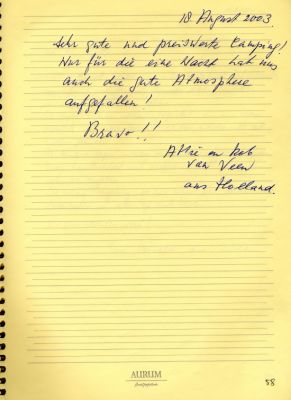 18. August 2003.
Sehr gute und preiswerte Camping!
Nur für die eine Nacht hat uns
auch die gute Atmosphere
aufgefallen!
Bravo!!
en Rob
van Veen
aus Holland.
AURUM
58